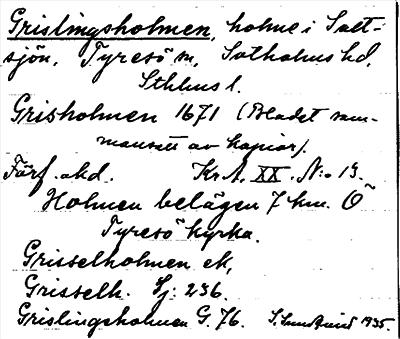 Grislingsholmen, holme i Salt-
sjön, Tyresö sn, Sotholms hd,
Sthlms l.
Grisholmen 1671 (Bladet sam-
mansatt av kopior).
Förf. akd. Kr. A. XX. N:o 13.
Holmen belägen 7 km. Ö
Tyresö kyrka.
Grisselholmen ek,
Grisselh. Sj: 236.
Grislingeholmen G. 76. S. Sundkvist 1935.